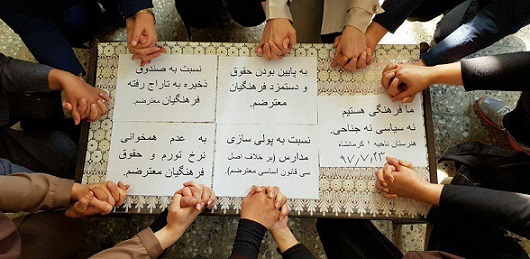 نسبت به صندوق
ذخیره به تاراج رفته
فرهنگیان معترضم.
به پایین بودن حقوق
و دستمزد فرهنگیان
معترضم.
ما فرهنگی هستیم
نه سیاسی نه جناحی.
هنرستان ناحیه ۱ کرمانشاه
۹۷/۷/۲۳
به عدم همخوانی
نرخ تورم و حقوق
فرهنگیان معترضم.
نسبت به پولی سازی
مدارس (بر خلاف اصل
سی قانون اساسی معترضم).